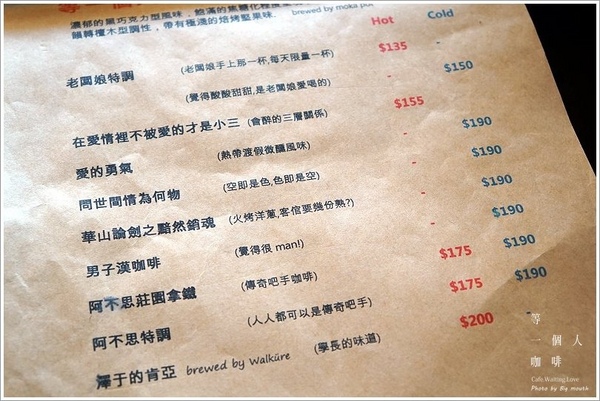 濃郁的黑巧克力型風味，飽滿的焦糖化
韻轉檀木型調性，帶有極淺的焙烤堅果味. brewed by moka pot
Hot Cold
老闆娘特調 (老闆娘手上那一杯,每天限量一杯) $135 -
(覺得酸酸甜甜,是老闆娘愛喝的) - $150
在愛情裡不被愛的才是小三 (會醉的三層關係) $155 -
愛的勇氣 (熱帶渡假微醺風味) - $190
問世間情為何物 (空即是色,色即是空) - $190
華山論劍之黯然銷魂 (火烤洋蔥,客倌要幾份熟?) - $190
男子漢咖啡 (覺得很 man!) - $190
阿不思莊園拿鐵 (傳奇吧手咖啡) $175 $190
阿不思特調 (人人都可以是傳奇吧手) $175 $190
澤于的肯亞 brewed by Walküre (學長的味道) $200 -
等
一個人
咖啡
Cafe Waiting Love
Photo by Big mouth